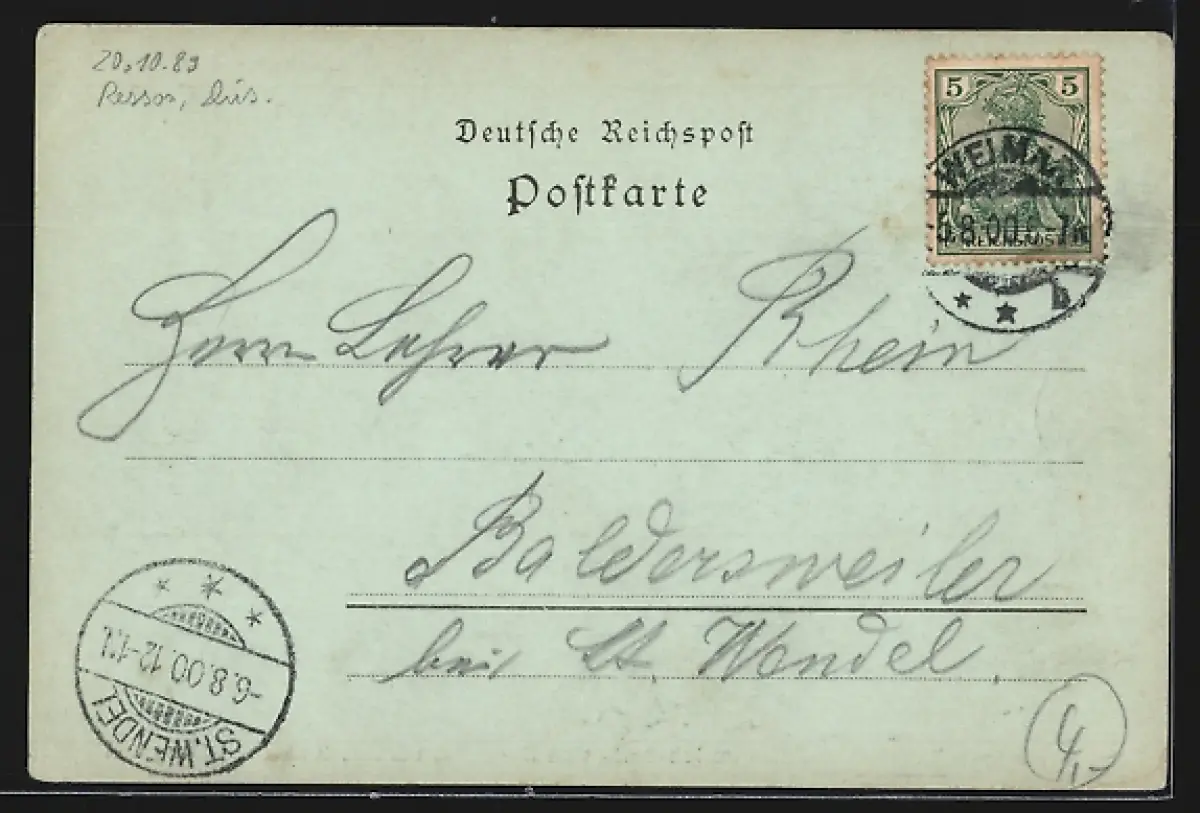 20.10.89
Deutsche Reichspost
Postkarte
5 5
REICHSPOST
WEIMAR
5.8.00.6-7N
b
Herrn Lehrer Rhein
Baldersweiler
bei St. Wendel
ST. WENDEL
-6.8.00.12-1N.
4,-